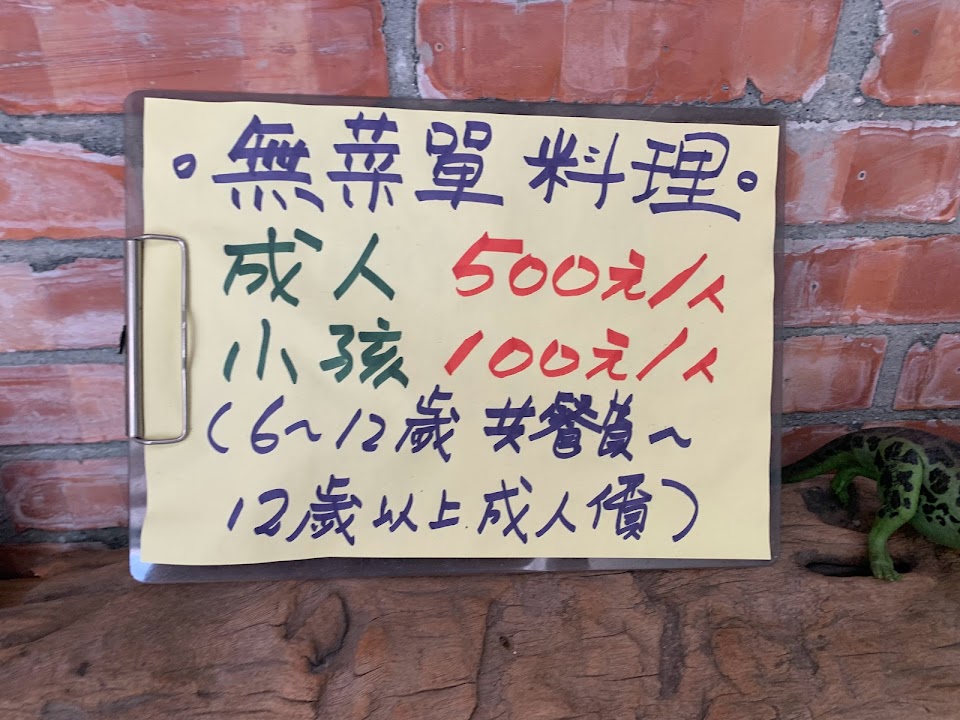 。無菜單 料理。
成人 500元/人
小孩 100元/人
(6~12歲 共餐費~
12歲以上成人價)